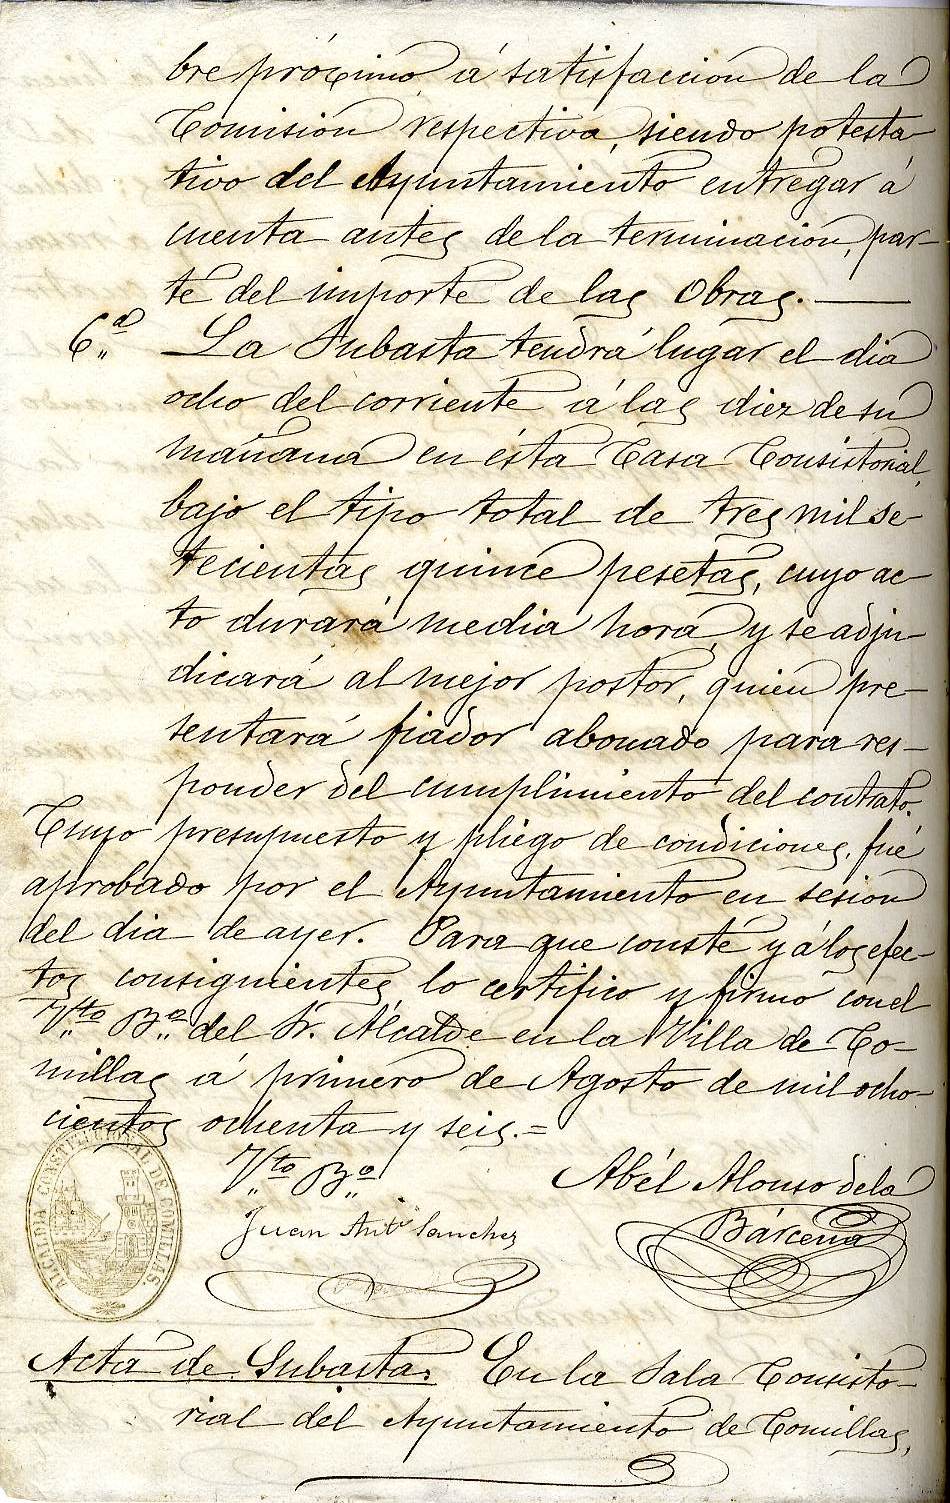 bre próximo, á satisfaccion de la
Comision respectiva, siendo potesta-
tivo del Ayuntamiento entregar á
cuenta antes de la terminacion, par-
te del importe de las Obras.
6.ª La Subasta tendrá lugar el dia
ocho del corriente á las diez de su
mañana en ésta Casa Consistorial,
bajo el tipo total de tres mil se-
tecientas quince pesetas, cuyo ac-
to durará media hora, y se adju-
dicará al mejor postor, quien pre-
sentará fiador abonado para res-
ponder del cumplimiento del contrato.
Cuyo presupuesto y pliego de condiciones, fué
aprobado por el Ayuntamiento en sesion
del dia de ayer. Para que conste y á los efec-
tos consiguientes lo certifico y firmo con el
V.to B.o del Sr. Alcalde en la Villa de Co-
millas á primero de Agosto de mil ocho-
cientos ochenta y seis.=
V.to B.o
Abél Alonso de la
Bárcena
Juan Ant.o Sanchez
ALCALDIA CONSTITUCIONAL DE COMILLAS.
Acta de Subasta. En la Sala Consisto-
rial del Ayuntamiento de Comillas,